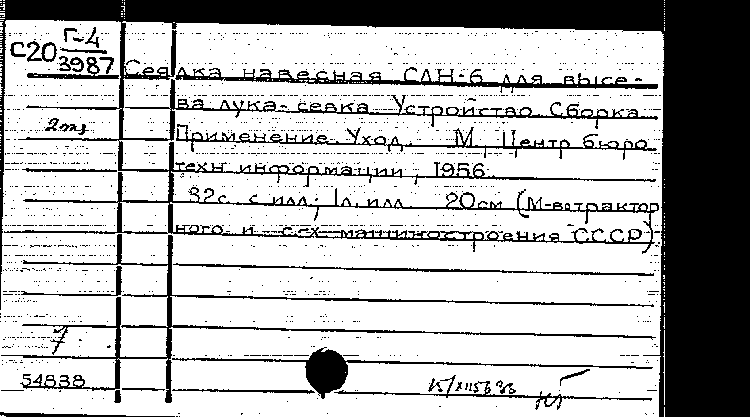 С20 Г-4
3987
Сеялка навесная СЛН-6 для высе-
ва лука-севка Устройство Сборка
2 экз
Применение Уход. М, Центр бюро
техн информации, 1956
32с. с илл; 1л. илл. 20см (М-во трактор
ного и с-х машиностроения СССР)
7
54838